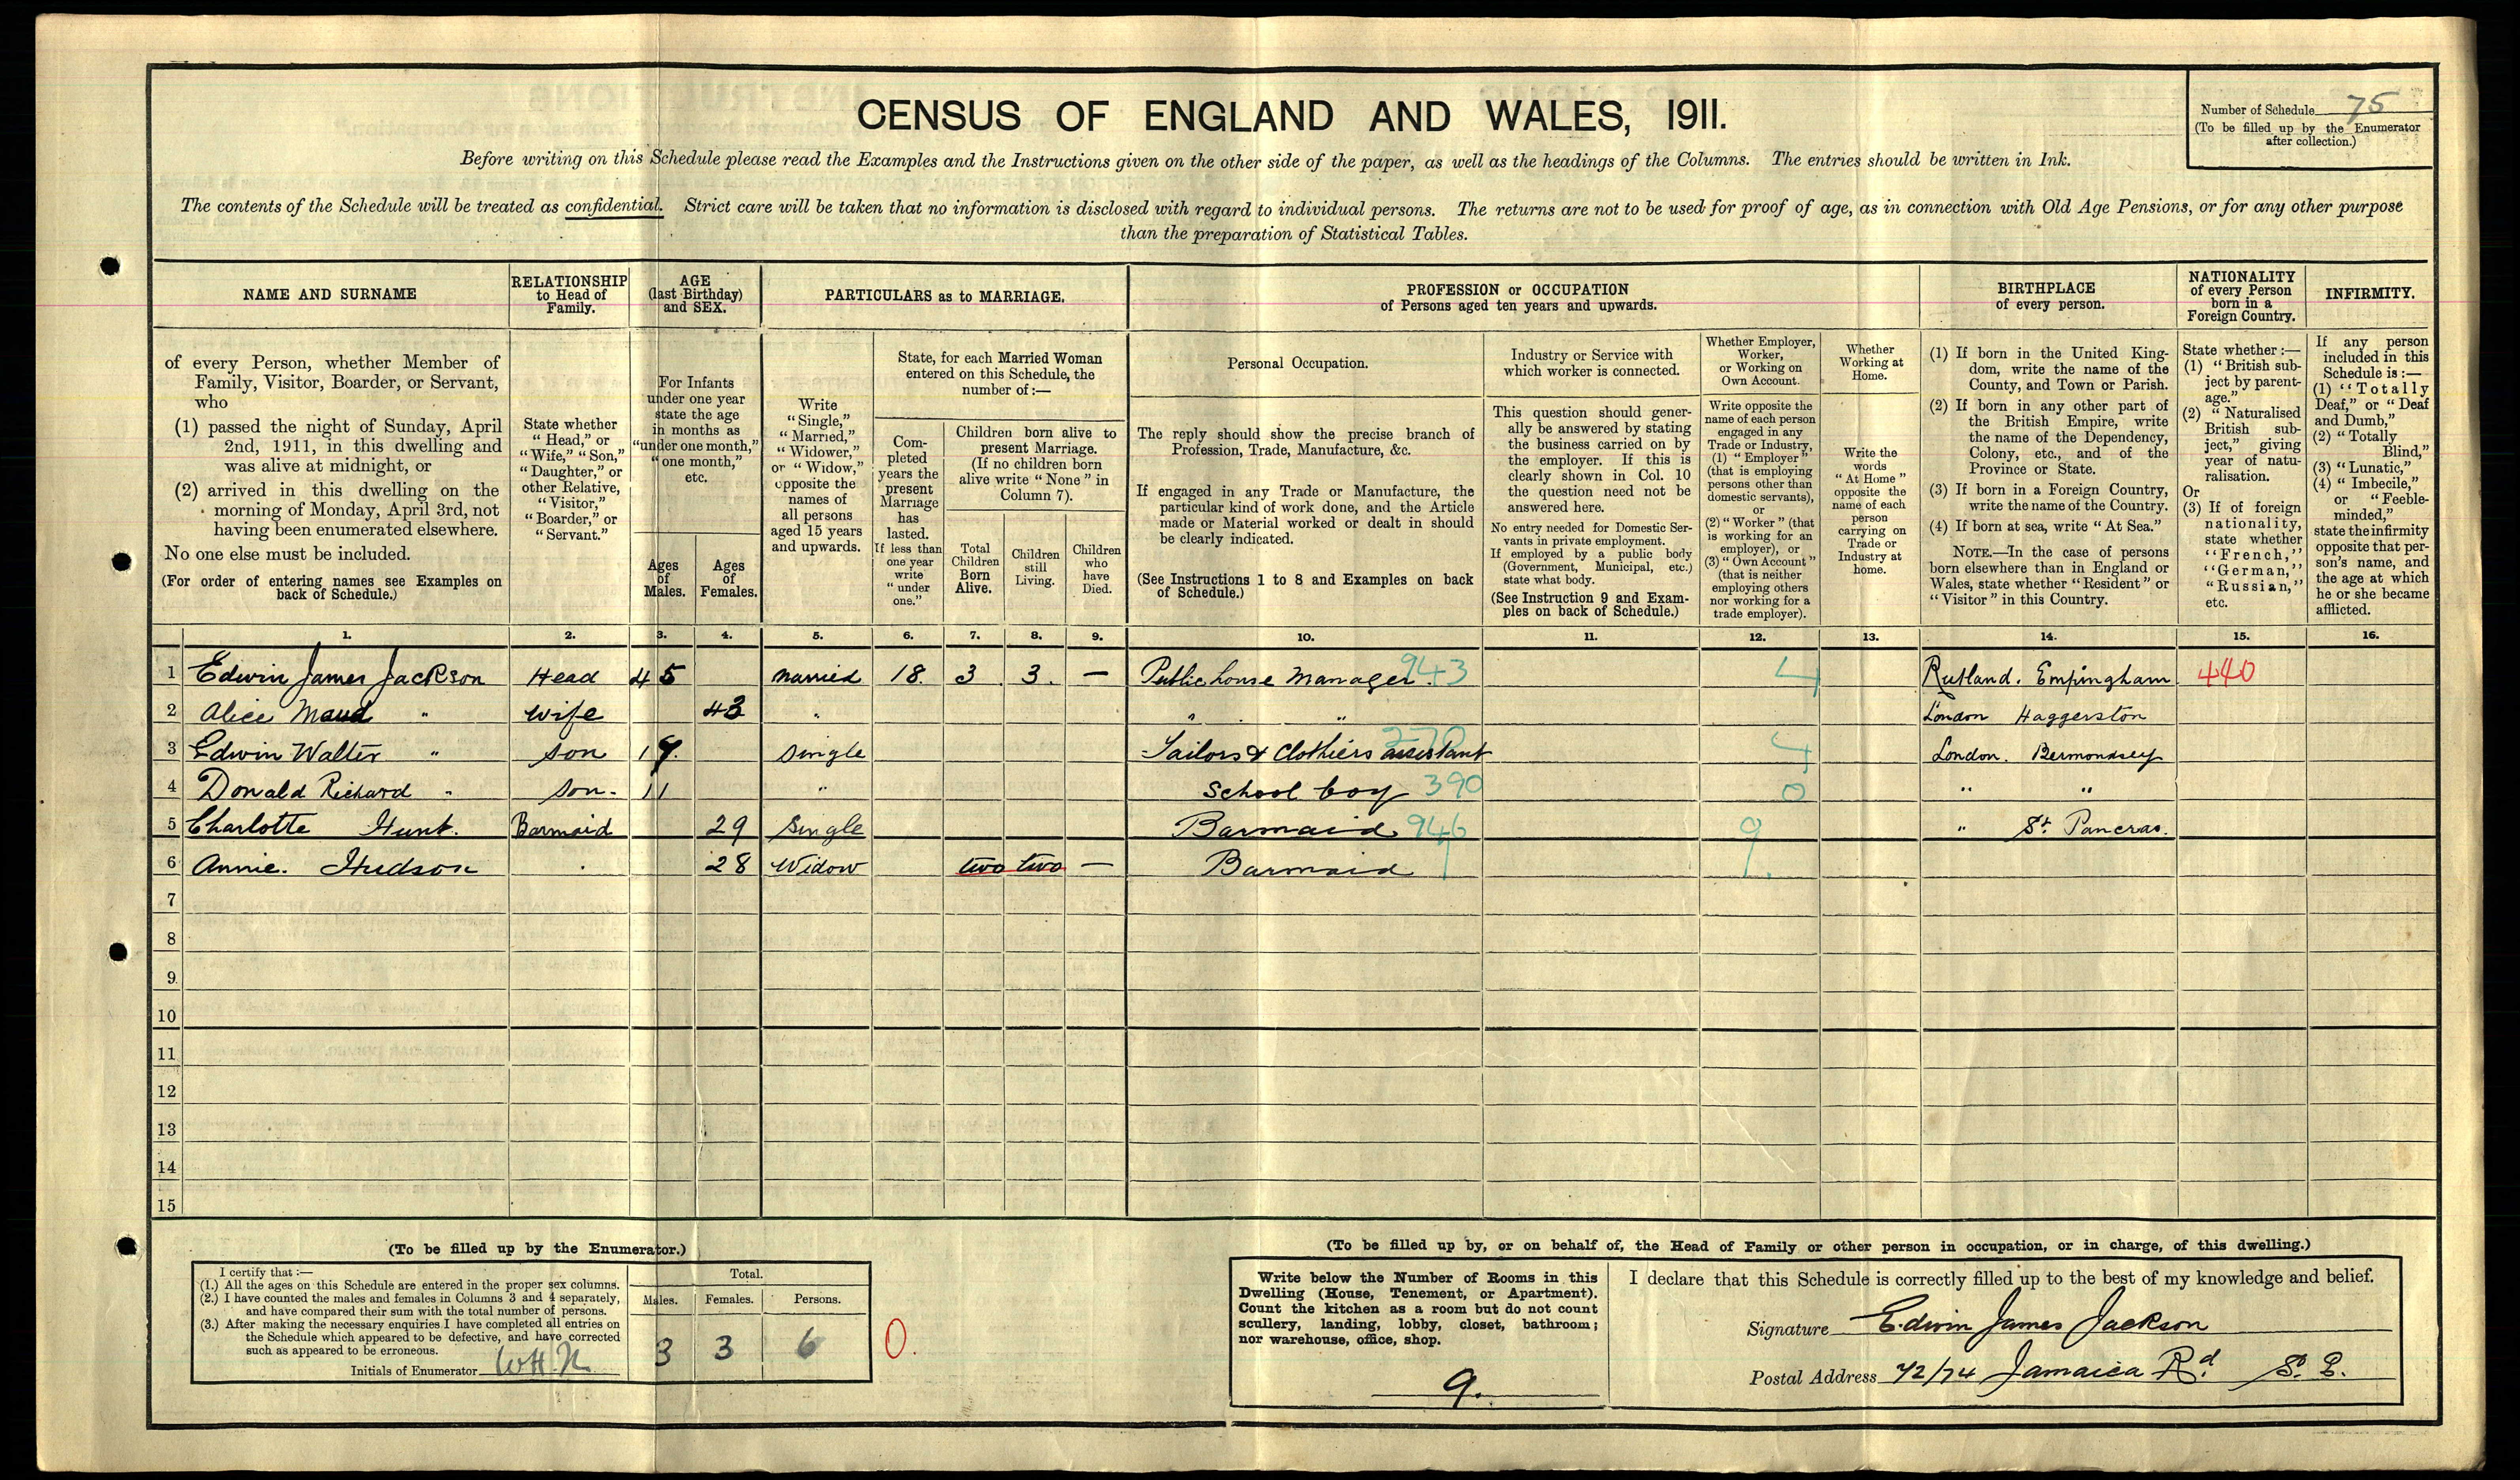 CENSUS OF ENGLAND AND WALES, 1911.
Number of Schedule 75
(To be filled up by the Enumerator
after collection.)
Before writing on this Schedule please read the Examples and the Instructions given on the other side of the paper, as well as the headings of the Columns. The entries should be written in Ink.
The contents of the Schedule will be treated as confidential. Strict care will be taken that no information is disclosed with regard to individual persons. The returns are not to be used for proof of age, as in connection with Old Age Pensions, or for any other purpose
than the preparation of Statistical Tables.
NAME AND SURNAME
of every Person, whether Member of
Family, Visitor, Boarder, or Servant,
who
(1) passed the night of Sunday, April
2nd, 1911, in this dwelling and
was alive at midnight, or
(2) arrived in this dwelling on the
morning of Monday, April 3rd, not
having been enumerated elsewhere.
No one else must be included.
(For order of entering names see Examples on
back of Schedule.)
RELATIONSHIP
to Head of
Family.
State whether
"Head," or
"Wife," "Son,"
"Daughter," or
other Relative,
"Visitor,"
"Boarder," or
"Servant."
AGE
(last Birthday)
and SEX.
For Infants
under one year
state the age
in months as
"under one month,"
"one month,"
etc.
Ages
of
Males.
Ages
of
Females.
PARTICULARS as to MARRIAGE.
Write
"Single,"
"Married,"
"Widower,"
or "Widow,"
opposite the
names of
all persons
aged 15 years
and upwards.
State, for each Married Woman
entered on this Schedule, the
number of:—
Com-
pleted
years the
present
Marriage
has
lasted.
If less than
one year
write
"under
one."
Children born alive to
present Marriage.
(If no children born
alive write "None" in
Column 7).
Total
Children
Born
Alive.
Children
still
Living.
Children
who
have
Died.
PROFESSION or OCCUPATION
of Persons aged ten years and upwards.
Personal Occupation.
The reply should show the precise branch of
Profession, Trade, Manufacture, &c.
If engaged in any Trade or Manufacture, the
particular kind of work done, and the Article
made or Material worked or dealt in should
be clearly indicated.
(See Instructions 1 to 8 and Examples on back
of Schedule.)
Industry or Service with
which worker is connected.
This question should gener-
ally be answered by stating
the business carried on by
the employer. If this is
clearly shown in Col. 10
the question need not be
answered here.
No entry needed for Domestic Ser-
vants in private employment.
If employed by a public body
(Government, Municipal, etc.)
state what body.
(See Instruction 9 and Exam-
ples on back of Schedule.)
Whether Employer,
Worker,
or Working on
Own Account.
Write opposite the
name of each person
engaged in any
Trade or Industry,
(1) "Employer"
(that is employing
persons other than
domestic servants),
or
(2) "Worker" (that
is working for an
employer), or
(3) "Own Account"
(that is neither
employing others
nor working for a
trade employer).
Whether
Working at
Home.
Write the
words
"At Home"
opposite the
name of each
person
carrying on
Trade or
Industry at
home.
BIRTHPLACE
of every person.
(1) If born in the United King-
dom, write the name of the
County, and Town or Parish.
(2) If born in any other part of
the British Empire, write
the name of the Dependency,
Colony, etc., and of the
Province or State.
(3) If born in a Foreign Country,
write the name of the Country.
(4) If born at sea, write "At Sea."
NOTE.—In the case of persons
born elsewhere than in England or
Wales, state whether "Resident" or
"Visitor" in this Country.
NATIONALITY
of every Person
born in a
Foreign Country.
State whether:—
(1) "British sub-
ject by parent-
age."
(2) "Naturalised
British sub-
ject," giving
year of natu-
ralisation.
Or
(3) If of foreign
nationality,
state whether
"French,"
"German,"
"Russian,"
etc.
INFIRMITY.
If any person
included in this
Schedule is:—
(1) "Totally
Deaf," or "Deaf
and Dumb,"
(2) "Totally
Blind,"
(3) "Lunatic,"
(4) "Imbecile,"
or "Feeble-
minded,"
state the infirmity
opposite that per-
son's name, and
the age at which
he or she became
afflicted.
1. 2. 3. 4. 5. 6. 7. 8. 9. 10. 11. 12. 13. 14. 15. 16.
1 Edwin James Jackson Head 45 Married 18. 3 3. — Public house Manager. 943 4 Rutland. Empingham 440
2 Alice Maud " Wife 43 " " " London Haggerston
3 Edwin Walter " Son Single Tailors & Clothiers assistant 270 4 London. Bermondsey
4 Donald Richard " Son. 11 " School boy 390 0 " "
5 Charlotte Hunt. Barmaid 29 Single Barmaid 946 9 " St. Pancras.
6 Annie. Hudson 28 Widow two two — Barmaid
7
8
9
10
11
12
13
14
15
(To be filled up by the Enumerator.)
I certify that:—
(1.) All the ages on this Schedule are entered in the proper sex columns.
(2.) I have counted the males and females in Columns 3 and 4 separately,
and have compared their sum with the total number of persons.
(3.) After making the necessary enquiries I have completed all entries on
the Schedule which appeared to be defective, and have corrected
such as appeared to be erroneous.
Initials of Enumerator
Total.
Males. Females. Persons.
3 3 6 0.
(To be filled up by, or on behalf of, the Head of Family or other person in occupation, or in charge, of this dwelling.)
Write below the Number of Rooms in this
Dwelling (House, Tenement, or Apartment).
Count the kitchen as a room but do not count
scullery, landing, lobby, closet, bathroom;
nor warehouse, office, shop.
9.
I declare that this Schedule is correctly filled up to the best of my knowledge and belief.
Signature Edwin James Jackson
Postal Address 72/74 Jamaica Rd. S.E.